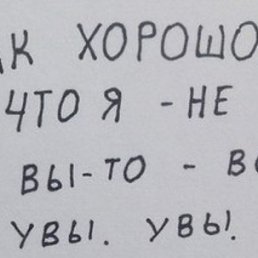 ХОРОШО
ЧТО Я - НЕ
ВЫ-ТО -
УВЫ. УВЫ.